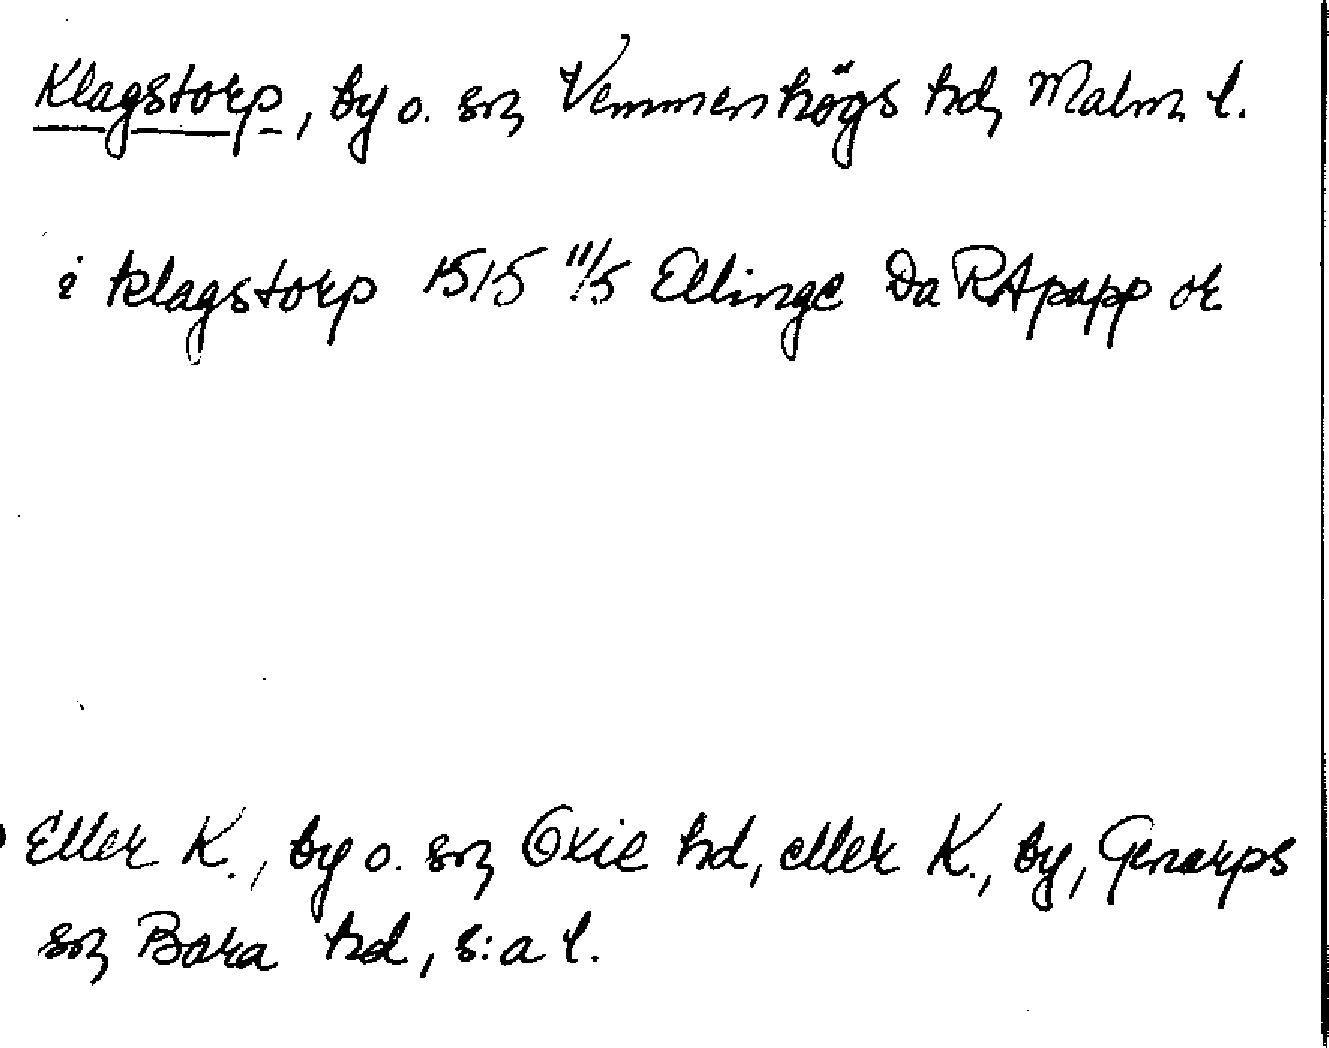 Klagstorp, by o. sn, Vemmenhögs hd, Malm. l.
i klagstorp 1515 11/5 Ellinge Da RA papp or
) Eller K., by o. sn, Oxie hd, eller K., by, Genarps
sn, Bara hd, s:a l.